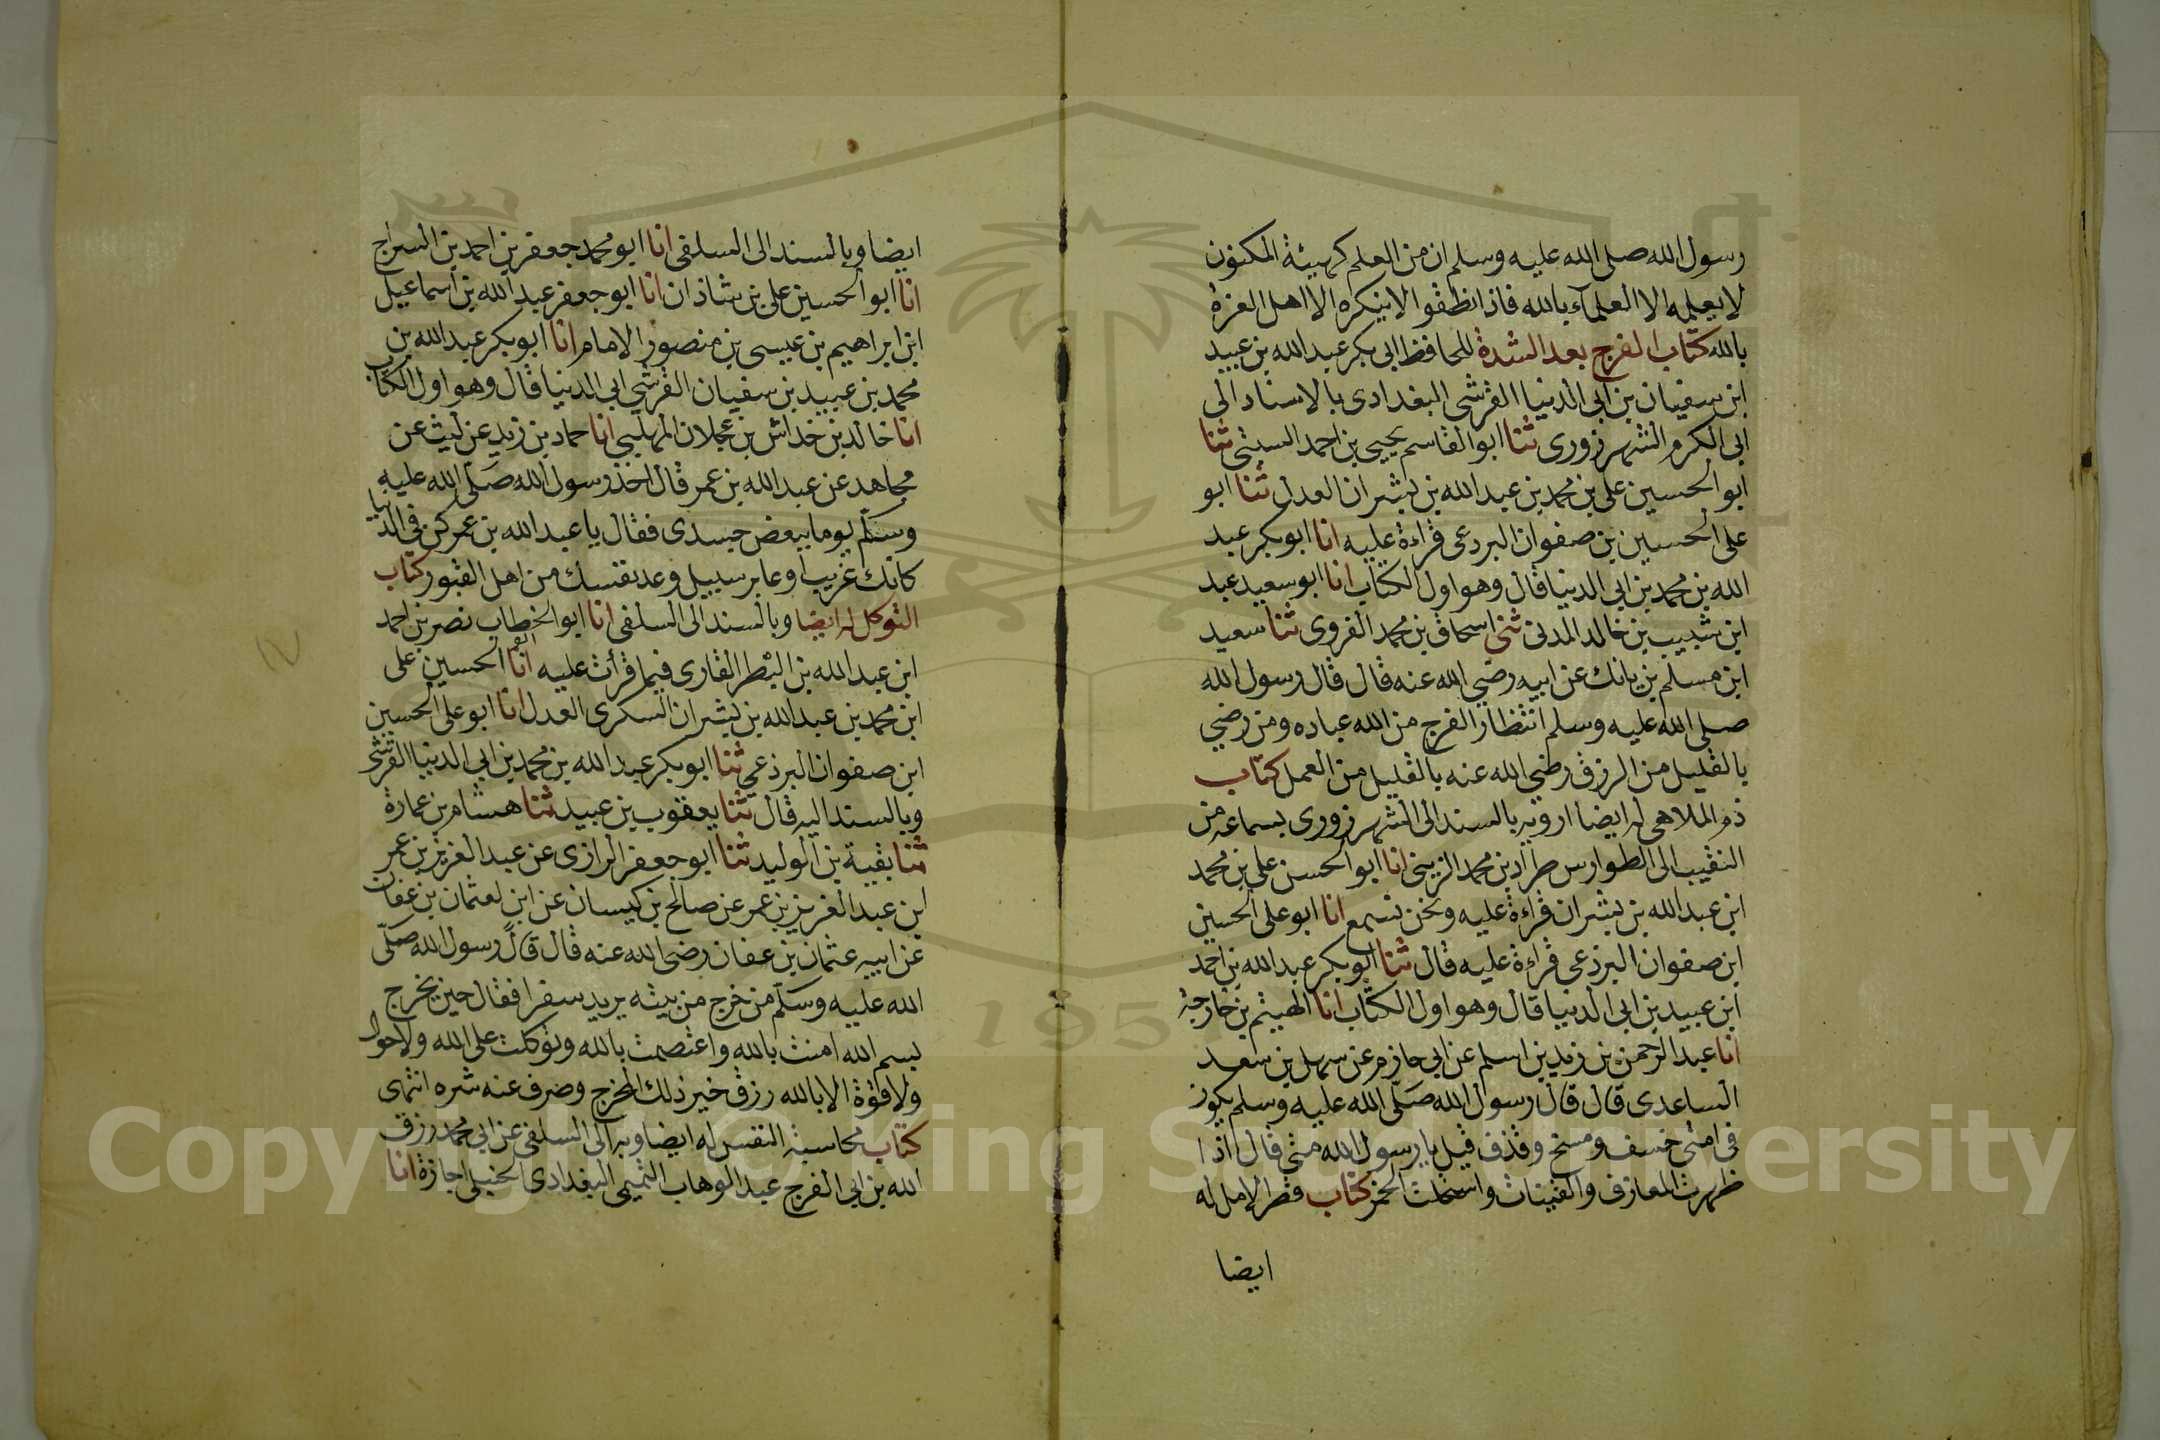 رسول الله صلى الله عليه وسلم ان من العلم كهيئة المكنون
لا يعلمه الا العلماء بالله فاذا نطقوا لا ينكره الا اهل الغرة
بالله كتاب الفرج بعد الشدة للحافظ ابي بكر عبد الله بن عبيد
ابن سفيان بن ابي الدنيا القرشي البغدادي بالاسناد الى
ابي الكرم الشهرزوري ثنا ابو القاسم يحيى بن احمد السبتي ثنا
ابو الحسين علي بن محمد بن عبد الله بن بشران العدل ثنا ابو
علي الحسين بن صفوان البردعي قراءة عليه انا ابو بكر عبد
الله بن محمد بن ابي الدنيا قال وهو اول الكتاب انا ابو سعيد عبد
ابن شبيب بن خالد المدني ثني اسحاق بن محمد الفروي ثنا سعيد
ابن مسلم بن بانك عن ابيه رضي الله عنه قال قال رسول الله
صلى الله عليه وسلم انتظار الفرج من الله عباده ومن رضي
بالقليل من الرزق رضي الله عنه بالقليل من العمل كتاب
ذم الملاهي له ايضا ارويه بالسند الى الشهرزوري بسماعه من
النقيب الى الطوارس طراد بن محمد الزينبي انا ابو الحسن علي بن محمد
ابن عبد الله بن بشران قراءة عليه ونحن نسمع انا ابو علي الحسين
ابن صفوان البرذعي قراءة عليه قال ثنا ابو بكر عبد الله بن احمد
ابن عبيد بن ابي الدنيا قال وهو اول الكتاب انا الهيثم بن خارجة
انا عبد الرحمن بن زيد بن اسلم عن ابي حازم عن سهل بن سعد
الساعدي قال قال رسول الله صلى الله عليه وسلم يكون
في امتي خسف ومسخ وقذف قيل يا رسول الله متى قال اذا
ظهرت المعازف والقينات واستحلت الخمر كتاب قصر الامل له
ايضا
ايضا وبالسند الى السلفي انا ابو محمد جعفر بن احمد بن السراج
انا ابو الحسين علي بن شاذان انا ابو جعفر عبد الله بن اسماعيل
ابن ابراهيم بن عيسى بن منصور الامام انا ابو بكر عبد الله بن
محمد بن عبيد بن سفيان القرشي ابي الدنيا قال وهو اول الكتاب
انا خالد بن خداش بن عجلان المهلبي انا حماد بن زيد عن ليث عن
مجاهد عن عبد الله بن عمر قال اخذ رسول الله صلى الله عليه
وسلم يوما ببعض جسدي فقال يا عبد الله بن عمر كن في الدنيا
كانك غريب او عابر سبيل وعد نفسك من اهل القبور كتاب
التوكل له ايضا وبالسند الى السلفي انا ابو الخطاب نصر بن احمد
ابن عبد الله بن البطر القاري فيما قرأت عليه انا الحسين علي
ابن محمد بن عبد الله بن بشران السكري العدل انا ابو علي الحسين
ابن صفوان البرذعي ثنا ابو بكر عبد الله بن محمد بن ابي الدنيا القرشي
وبالسند اليه قال ثنا يعقوب بن عبيد ثنا هشام بن عمارة
ثنا بقية بن الوليد ثنا ابو جعفر الرازي عن عبد العزيز بن عمر
ابن عبد العزيز بن عمر عن صالح بن كيسان عن ابن لعثمان بن عفان
عن ابيه عثمان بن عفان رضي الله عنه قال قال رسول الله صلى
الله عليه وسلم من خرج من بيته يريد سفرا فقال حين يخرج
بسم الله امنت بالله واعتصمت بالله وتوكلت على الله ولا حول
ولا قوة الا بالله رزق خير ذلك المخرج وصرف عنه شره انتهى
كتاب محاسبة النفس له ايضا وبه الى السلفي عن ابي محمد رزق
الله بن ابي الفرج عبد الوهاب التميمي البغدادي الحنبلي اجازة انا
Copyright © King Saud University
195